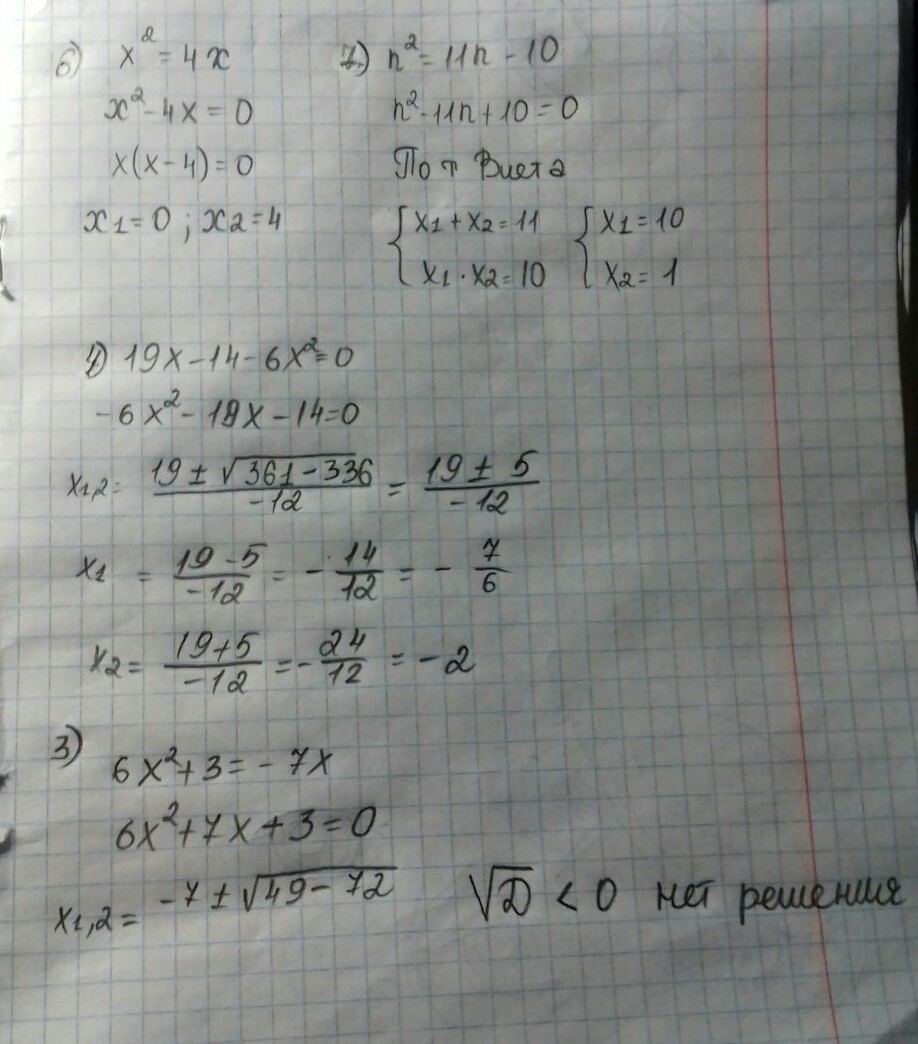 6) x² = 4x
x² - 4x = 0
x(x - 4) = 0
x1 = 0 ; x2 = 4
7) n² = 11n - 10
n² - 11n + 10 = 0
По т Виета
{ x1 + x2 = 11 { x1 = 10
x1 · x2 = 10 x2 = 1
1) 19x - 14 - 6x² = 0
-6x² - 19x - 14 = 0
x1,2 = (19 ± √(361 - 336))/(-12) = (19 ± 5)/(-12)
x1 = (19 - 5)/(-12) = - 14/12 = - 7/6
x2 = (19 + 5)/(-12) = - 24/12 = - 2
3)
6x² + 3 = - 7x
6x² + 7x + 3 = 0
x1,2 = -7 ± √(49 - 72) √D < 0 нет решения